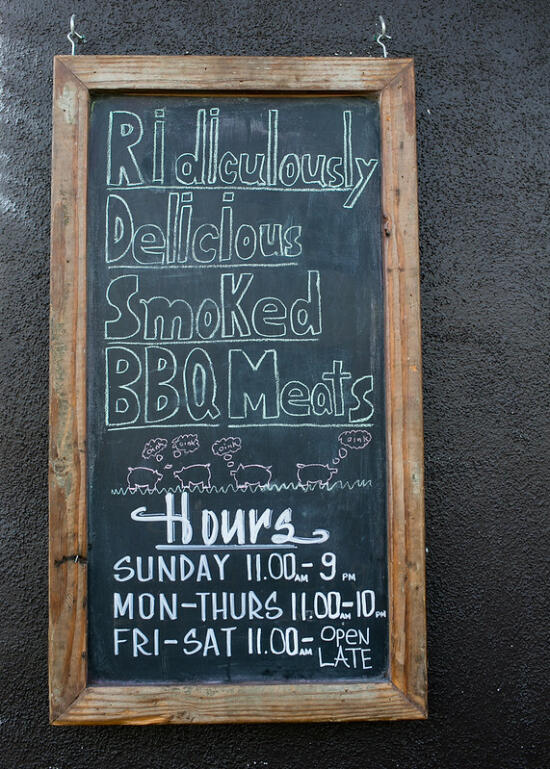 Ridiculously
Delicious
Smoked
BBQ Meats
oink oink oink oink
Hours
SUNDAY 11.00AM-9 PM
MON-THURS 11.00AM-10PM
FRI-SAT 11.00AM-OPEN LATE